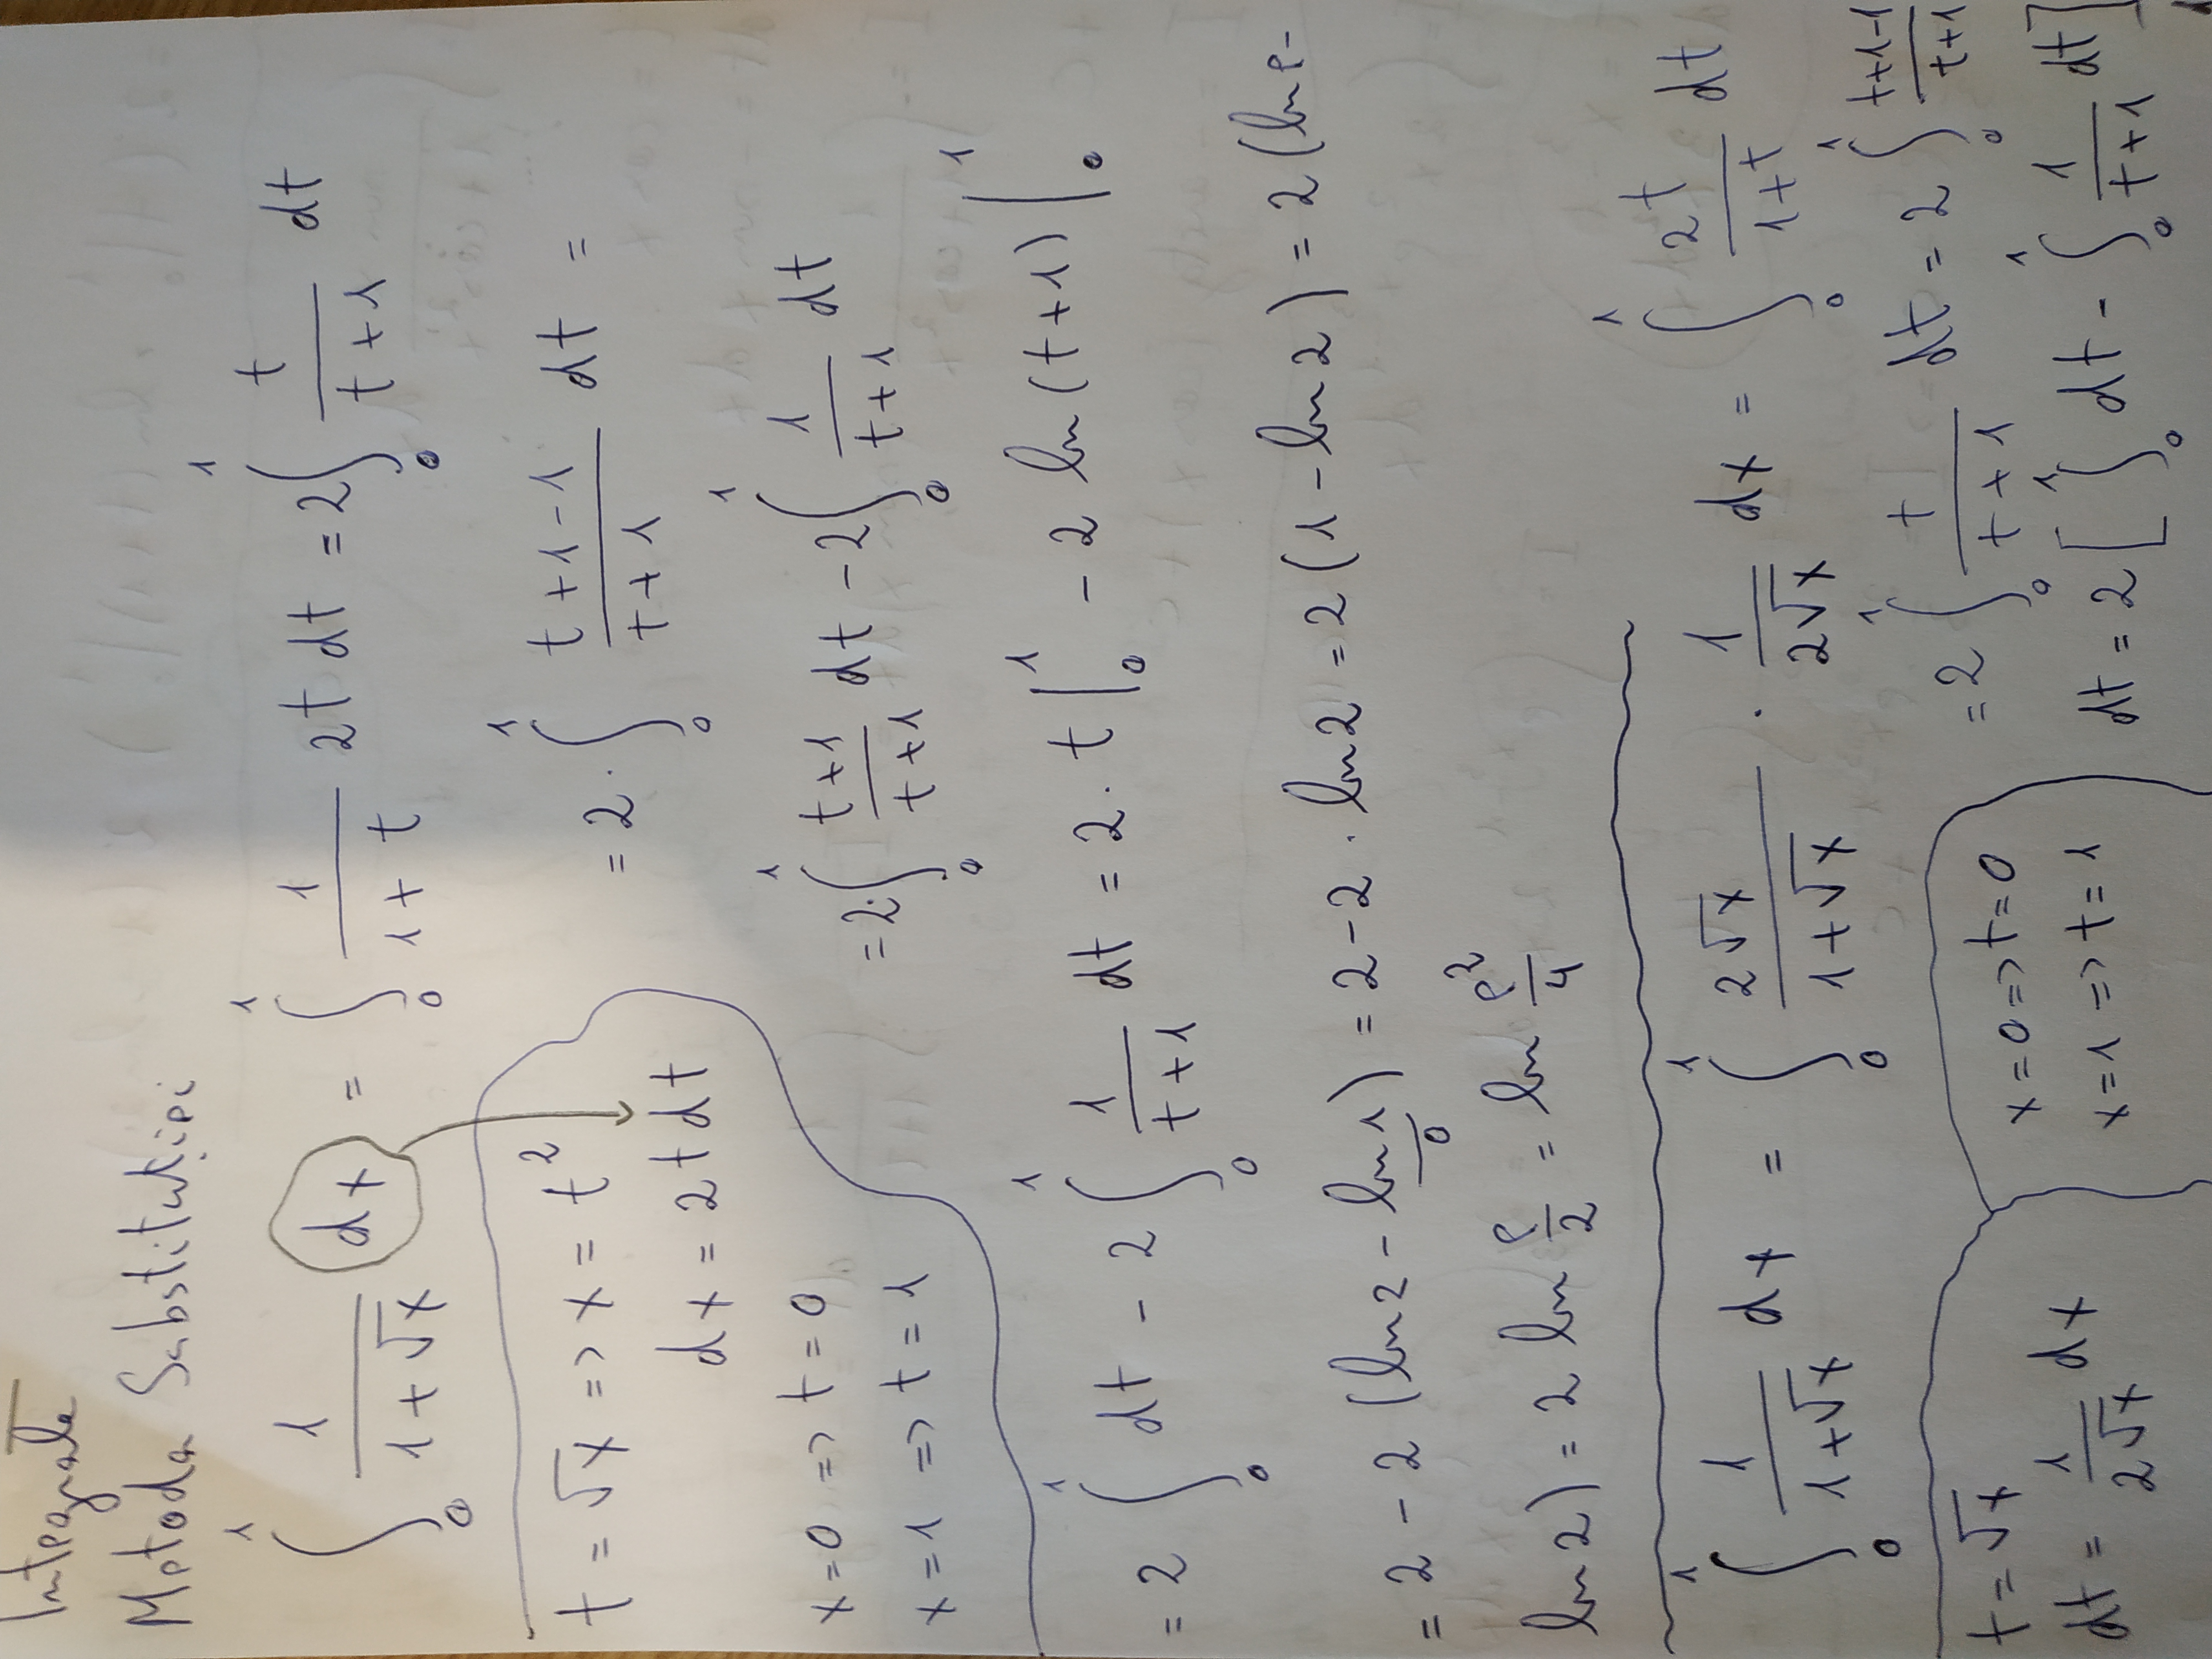 Integrale
Metoda Substituției
∫₀¹ 1/(1+√x) dx = ∫₀¹ 1/(1+t) 2t dt = 2∫₀¹ t/(t+1) dt
t = √x => x = t²
dx = 2t dt
x=0 => t=0
x=1 => t=1
= 2·∫₀¹ (t+1-1)/(t+1) dt =
= 2·∫₀¹ (t+1)/(t+1) dt - 2∫₀¹ 1/(t+1) dt
= 2 ∫₀¹ dt - 2 ∫₀¹ 1/(t+1) dt = 2·t |₀¹ - 2 ln(t+1) |₀¹
= 2 - 2 (ln2 - ln1) = 2-2·ln2 = 2(1-ln2) = 2(ln e-
0
ln2) = 2 ln e/2 = ln e²/4
∫₀¹ 1/(1+√x) dx = ∫₀¹ 2√x/(1+√x) · 1/(2√x) dx = ∫₀¹ 2t/(1+t) dt
= 2 ∫₀¹ t/(t+1) dt = 2 ∫₀¹ (t+1-1)/(t+1)
dt = 2 [∫₀¹ dt - ∫₀¹ 1/(t+1) dt]
t = √x
dt = 1/(2√x) dx
x=0 => t=0
x=1 => t=1